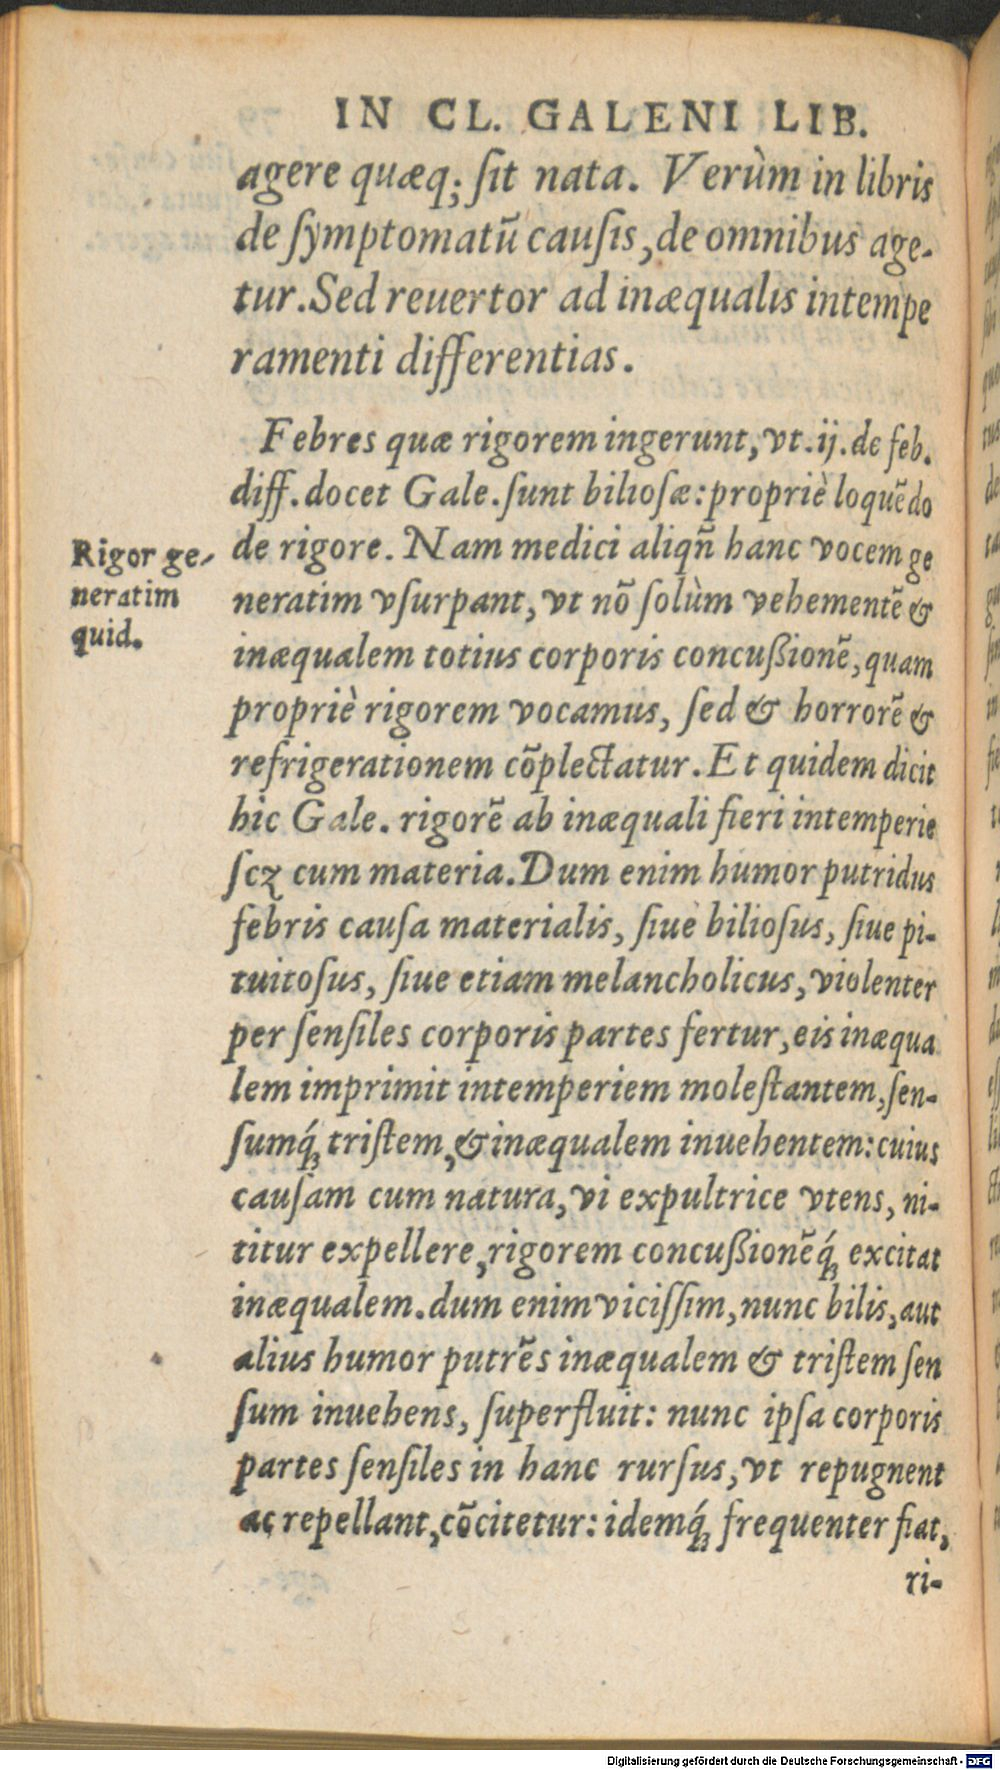 IN CL. GALENI LIB.
agere quæq; ſit nata. Verùm in libris
de ſymptomatũ cauſis, de omnibus age-
tur. Sed reuertor ad inæqualis intempe
ramenti differentias.
Febres quæ rigorem ingerunt, vt .ij. de feb.
diff. docet Gale. ſunt bilioſæ: propriè loquẽdo
de rigore. Nam medici aliqñ hanc vocem ge
neratim vſurpant, vt nõ ſolùm vehementẽ &
inæqualem totius corporis concußionẽ, quam
propriè rigorem vocamus, ſed & horrorẽ &
refrigerationem cõplectatur. Et quidem dicit
hic Gale. rigorẽ ab inæquali fieri intemperie
ſcꝫ cum materia. Dum enim humor putridus
febris cauſa materialis, ſiue bilioſus, ſiue pi-
tuitoſus, ſiue etiam melancholicus, violenter
per ſenſiles corporis partes fertur, eis inæqua
lem imprimit intemperiem moleſtantem, ſen-
ſumq́ꝫ triſtem, & inæqualem inuehentem: cuius
cauſam cum natura, vi expultrice vtens, ni-
titur expellere, rigorem concußionẽq́ꝫ excitat
inæqualem. dum enim viciſſim, nunc bilis, aut
alius humor putrẽs inæqualem & triſtem ſen
ſum inuehens, superfluit: nunc ipſa corporis
partes ſenſiles in hanc rurſus, vt repugnent
ac repellant, cõcitetur: idemq́ꝫ frequenter fiat,
ri-
Rigor ge-
neratim
quid.
Digitalisierung gefördert durch die Deutsche Forschungsgemeinschaft - DFG